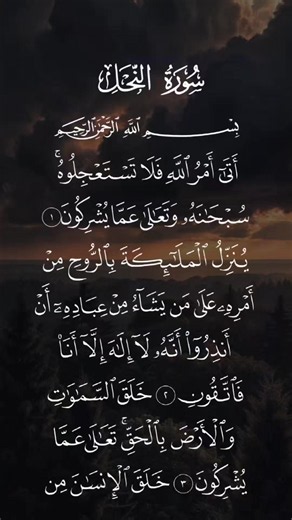 سُورَةُ النَّحْلِ
بِسْمِ اللَّهِ الرَّحْمَٰنِ الرَّحِيمِ
أَتَىٰٓ أَمْرُ ٱللَّهِ فَلَا تَسْتَعْجِلُوهُ ۚ
سُبْحَٰنَهُۥ وَتَعَٰلَىٰ عَمَّا يُشْرِكُونَ ١
يُنَزِّلُ ٱلْمَلَٰٓئِكَةَ بِٱلرُّوحِ مِنْ
أَمْرِهِۦ عَلَىٰ مَن يَشَآءُ مِنْ عِبَادِهِۦٓ أَنْ
أَنذِرُوٓا۟ أَنَّهُۥ لَآ إِلَٰهَ إِلَّآ أَنَا۠
فَٱتَّقُونِ ٢ خَلَقَ ٱلسَّمَٰوَٰتِ
وَٱلْأَرْضَ بِٱلْحَقِّ ۚ تَعَٰلَىٰ عَمَّا
يُشْرِكُونَ ٣ خَلَقَ ٱلْإِنسَٰنَ مِن